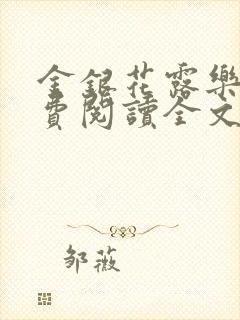 金銀花露樂
費閱讀全文
邹薇